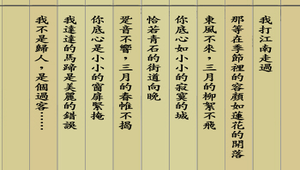 我打江南走過
那等在季節裡的容顏如蓮花的開落
東風不來，三月的柳絮不飛
你底心如小小的寂寞的城
恰若青石的街道向晚
跫音不響，三月的春帷不揭
你底心是小小的窗扉緊掩
我達達的馬蹄是美麗的錯誤
我不是歸人，是個過客……